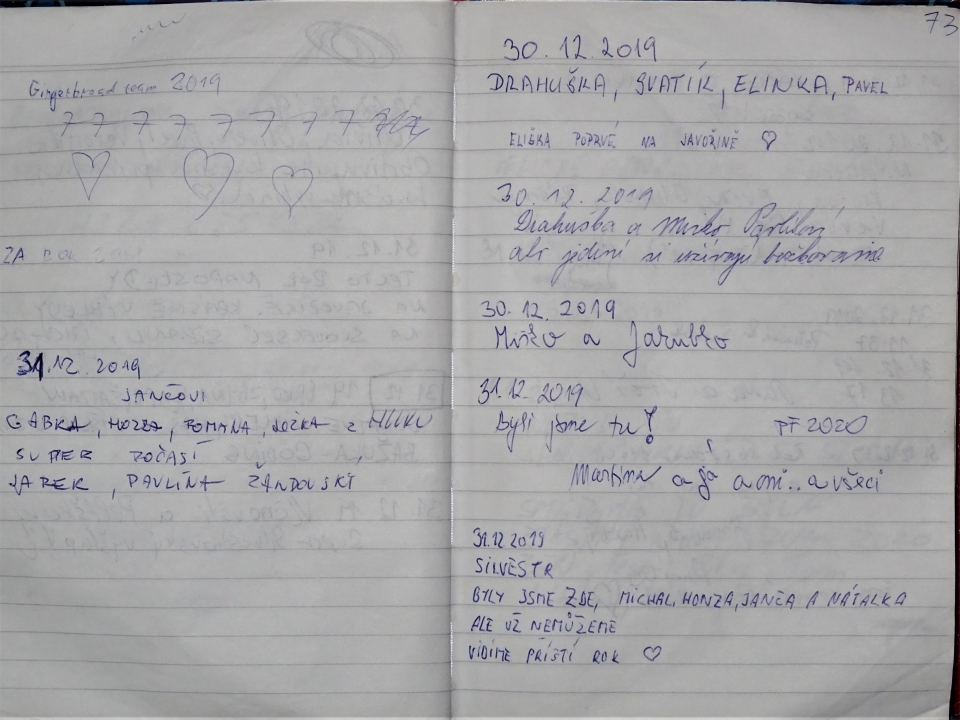 Gingerbread team 2019
7 7 7 7 7 7 7 7
ZA ROK
31.12.2019
JANČOVI
GÁBKA, HONZA, ROMANA, JOŽKA z
SUPER POČASÍ
JAREK, PAVLÍNA ŽANDOVSKÝ
73
30.12.2019
DRAHUŠKA, SVATÍK, ELINKA, PAVEL
ELIŠKA POPRVÉ NA JAVOŘINĚ ♡
30.12.2019
Drahuška a Mirko
ale jediní si užívají
30.12.2019
Mirko a Jarubko
31.12.2019
Byli jsme tu! PF 2020
Martina a já a oni.. a všeci
31.12.2019
SILVESTR
BYLY JSME ZDE, MICHAL, HONZA, JANČA A NÁTALKA
ALE UŽ NEMŮŽEME
VIDIME PŘÍŠTÍ ROK ♡